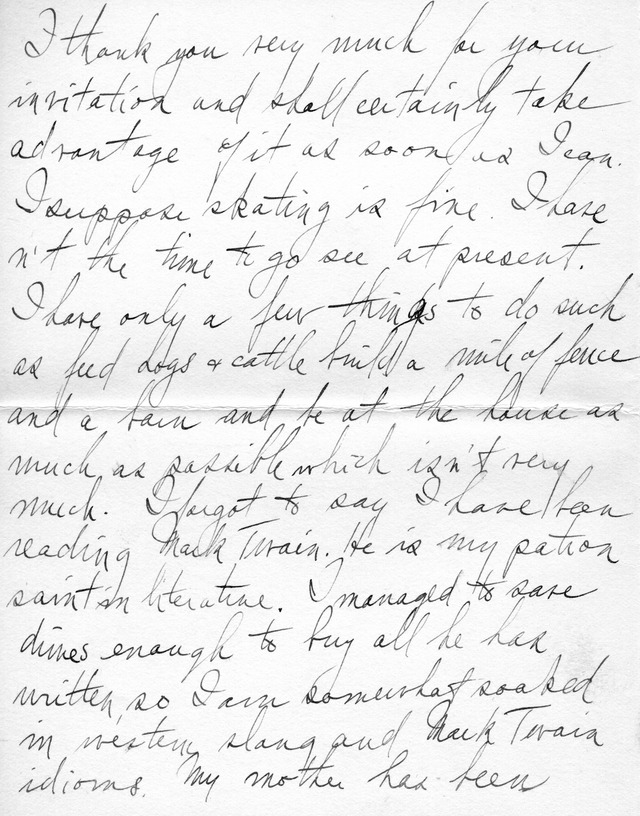 I thank you very much for your
invitation and shall certainly take
advantage of it as soon as I can.
I suppose skating is fine. I have
n't the time to go see at present.
I have only a few things to do such
as feed dogs & cattle build a mile of fence
and a barn and be at the house as
much as possible which isn't very
much. I forgot to say I have been
reading Mark Twain. He is my patron
saint in literature. I managed to save
dimes enough to buy all he has
written, so I am somewhat soaked
in western slang and Mark Twain
idioms. My mother has been